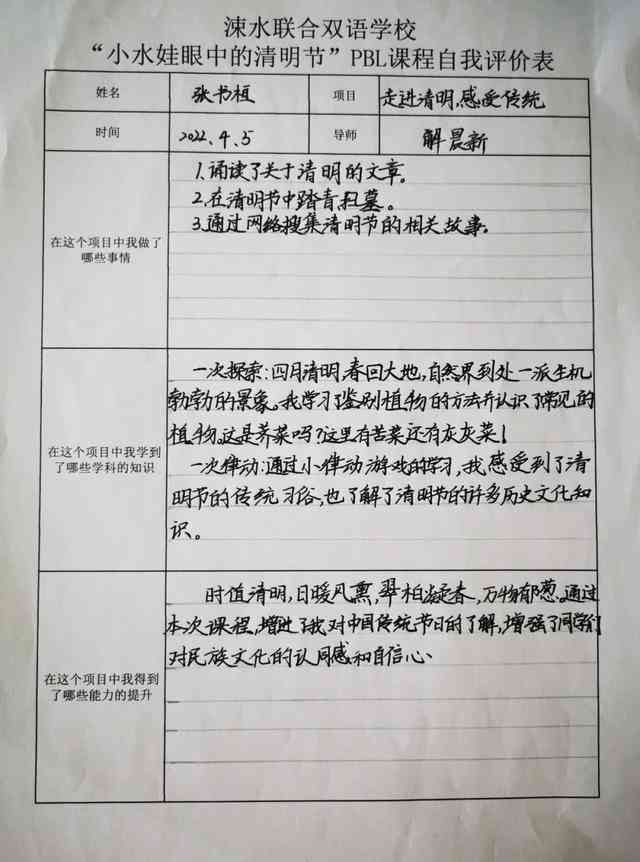 涑水联合双语学校
“小水娃眼中的清明节”PBL课程自我评价表
姓名 张书桓 项目 走进清明,感受传统
时间 2022.4.5 导师 解晨新
在这个项目中我做了
哪些事情
1.诵读了关于清明的文章。
2.在清明节中踏青扫墓。
3.通过网络搜集清明节的相关故事。
在这个项目中我学到
了哪些学科的知识
一次探索:四月清明,春回大地,自然界到处一派生机
勃勃的景象。我学习了鉴别植物的方法并认识了常见的
植物。这是荠菜吗?这里有苦菜还有灰灰菜!
一次律动:通过小律动游戏的学习,我感受到了清
明节的传统习俗,也了解了清明节的许多历史文化知
识。
在这个项目中我得到
了哪些能力的提升
时值清明,日暖风熏,翠柏凝春,万物郁葱。通过
本次课程,增进了我对中国传统节日的了解,增强了同学们
对民族文化的认同感和自信心、